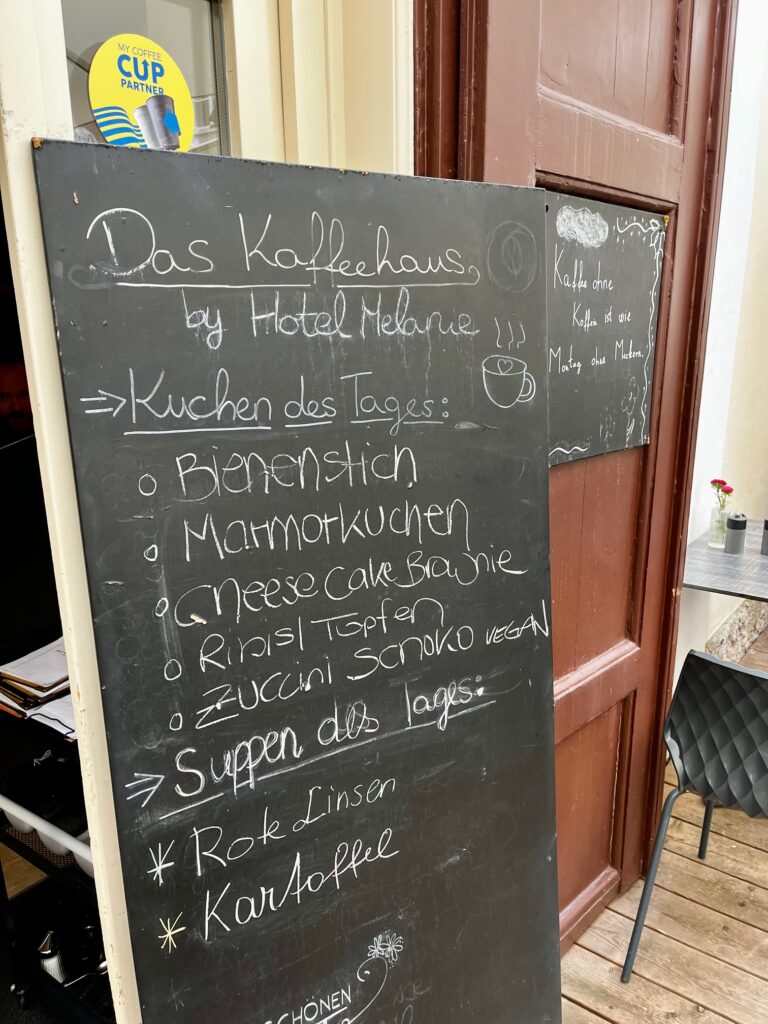 MY COFFEE
CUP
PARTNER
Das Kaffeehaus
by Hotel Melanie
⇒ Kuchen des Tages:
o Bienenstich
o Marmorkuchen
o Cheese Cake Brownie
o Ribisl Topfen
o Zuccini Schoko VEGAN
⇒ Suppen des Tages:
* Rote Linsen
* Kartoffel
SCHÖNEN
Kaffee ohne
Koffein ist wie
Montag ohne Meckern.